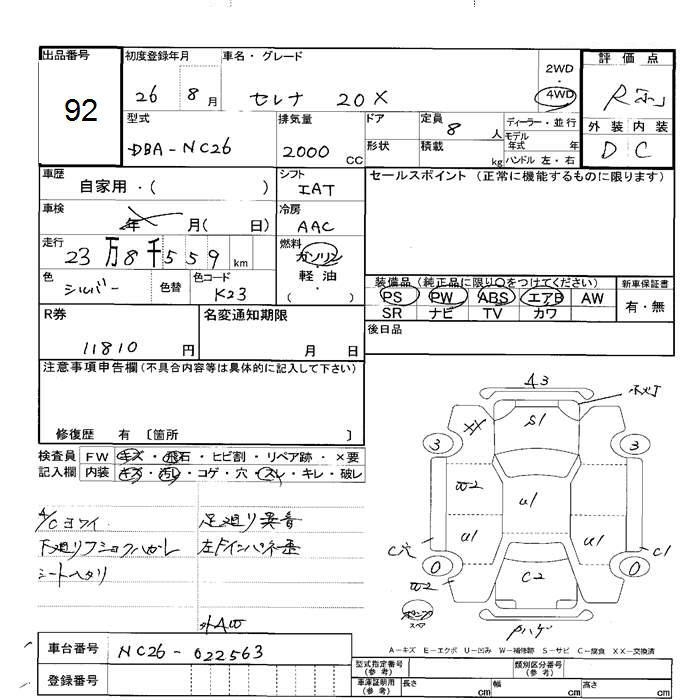 出品番号
92
初度登録年月
26 8月
車名・グレード
セレナ 20X
2WD
・
4WD
評価点
R
外装 内装
D C
型式
DBA-NC26
排気量
2000 CC
ドア
形状
定員
8 人
積載
kg
ディーラー・並行
モデル
年式 年
ハンドル 左・右
車歴
自家用・( )
シフト
IAT
セールスポイント (正常に機能するものに限ります)
車検
年 月( 日)
冷房
AAC
走行
23万8千559km
燃料
ガソリン
・
軽油
・
( )
色
シルバー
色替
色コード
K23
装備品 (純正品に限り○をつけてください)
PS PW ABS エアB AW
SR ナビ TV カワ
新車保証書
有・無
R券
11810 円
名変通知期限
月 日
後日品
注意事項申告欄(不具合内容等は具体的に記入して下さい)
修復歴 有 〔箇所 〕
検査員 FW キズ・飛石・ヒビ割・リペア跡・×要
記入欄 内装 キズ・汚レ・コゲ・穴・スレ・キレ・破レ
A/Cヨワイ 足廻り異音
下廻りフショクハガレ 左F
シートヘタリ
外AW
A3
S1
3
3
W2
U1
U1
U1
C穴
C1
0
0
C2
W2
スペア
ハゲ
車台番号
NC26-022563
登録番号
A-キズ E-エクボ U-凹み W-補修跡 S-サビ C-腐食 XX-交換済
型式指定番号
(参考)
類別区分番号
(参考)
車庫証明用
(参考)
長さ cm 幅 cm 高さ cm